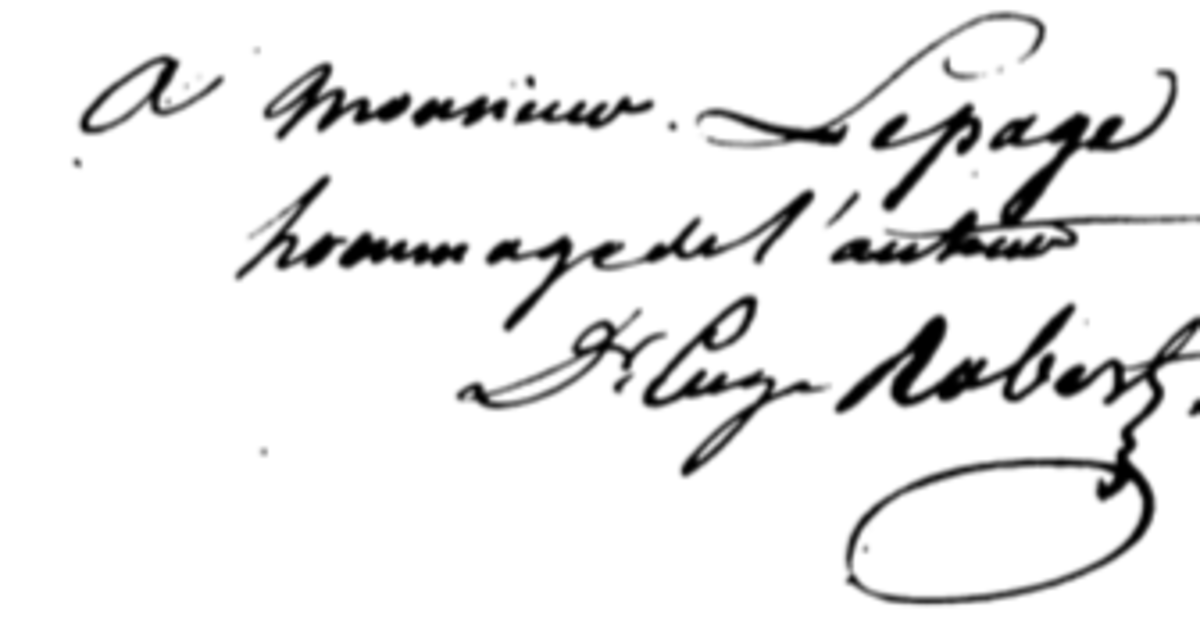 A monsieur Lepage
hommage de l'auteur
Dr. Eug. Robert